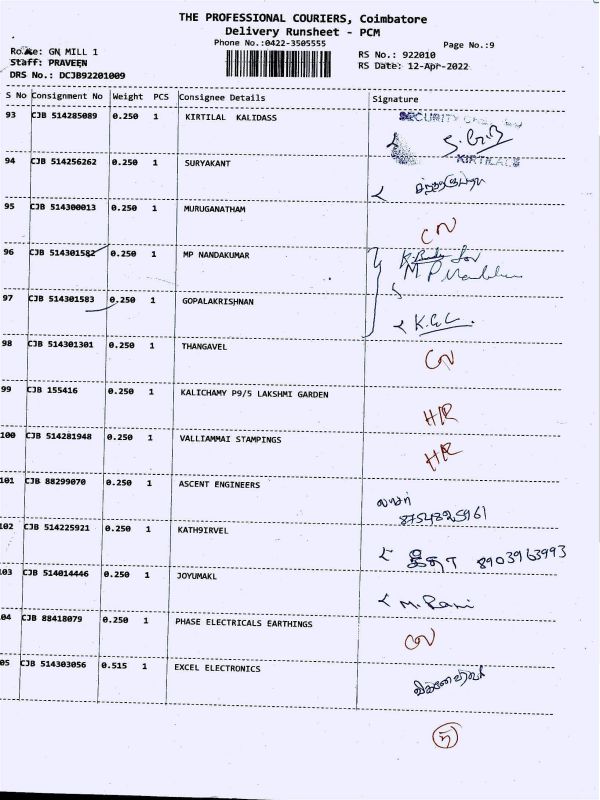 THE PROFESSIONAL COURIERS, Coimbatore
Delivery Runsheet - PCM
Phone No.:0422-3505555
Page No.:9
Route: GN MILL 1
RS No.: 922010
Staff: PRAVEEN
RS Date: 12-Apr-2022
DRS No.: DCJB92201009
S No Consignment No Weight PCS Consignee Details Signature
93 CJB 514285089 0.250 1 KIRTILAL KALIDASS SECURITY
KIRTILALS
94 CJB 514256262 0.250 1 SURYAKANT
95 CJB 514300013 0.250 1 MURUGANATHAM CN
96 CJB 514301582 0.250 1 MP NANDAKUMAR for
M P
97 CJB 514301583 0.250 1 GOPALAKRISHNAN K.G.C.
98 CJB 514301301 0.250 1 THANGAVEL CN
99 CJB 155416 0.250 1 KALICHAMY P9/5 LAKSHMI GARDEN H/R
100 CJB 514281948 0.250 1 VALLIAMMAI STAMPINGS H/R
101 CJB 88299070 0.250 1 ASCENT ENGINEERS
8754825961
102 CJB 514225921 0.250 1 KATH9IRVEL கீதா 8903963993
03 CJB 514014446 0.250 1 JOYUMAKL M. Rani
04 CJB 88418079 0.250 1 PHASE ELECTRICALS EARTHINGS CN
05 CJB 514303056 0.515 1 EXCEL ELECTRONICS